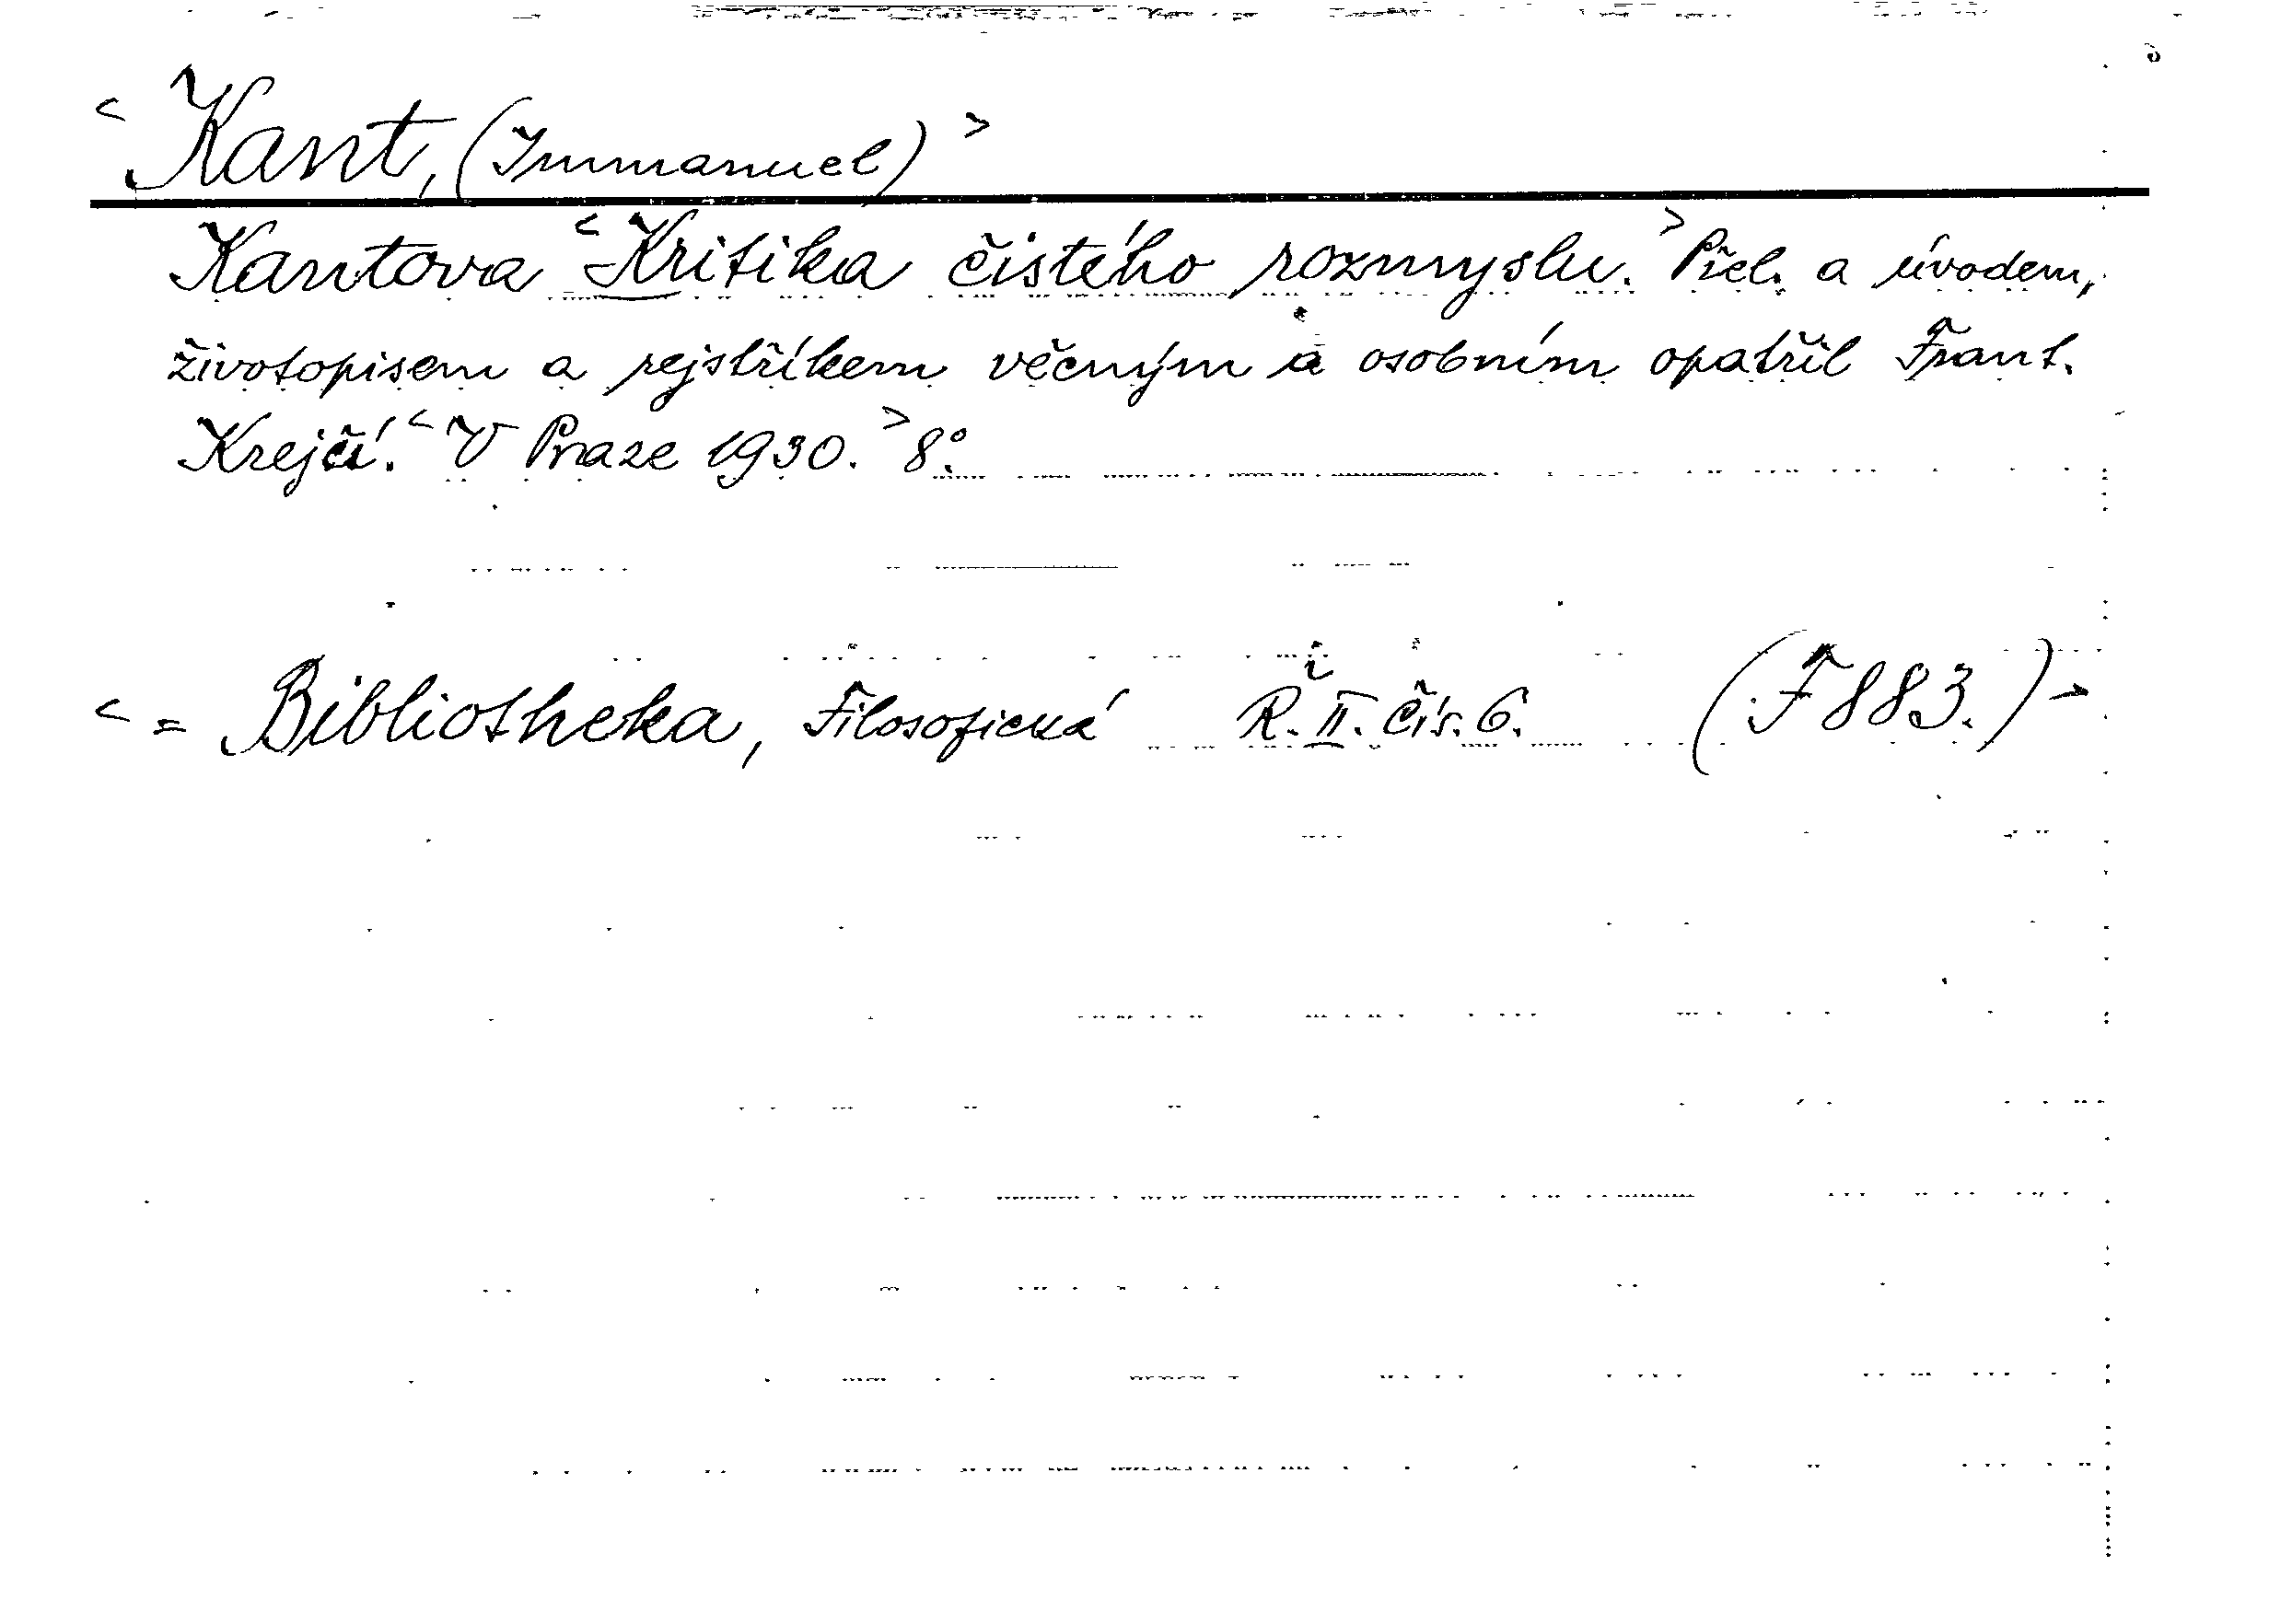 < Kant, (Immanuel) >
Kantova < Kritika čistého rozmyslu. > Přel. a úvodem,
životopisem a rejstříkem věcným a osobním opatřil Frant.
Krejčí. < V Praze 1930. > 8°.
< = Bibliotheka, Filosofická Ř. II. čís. 6. (F 883.) >